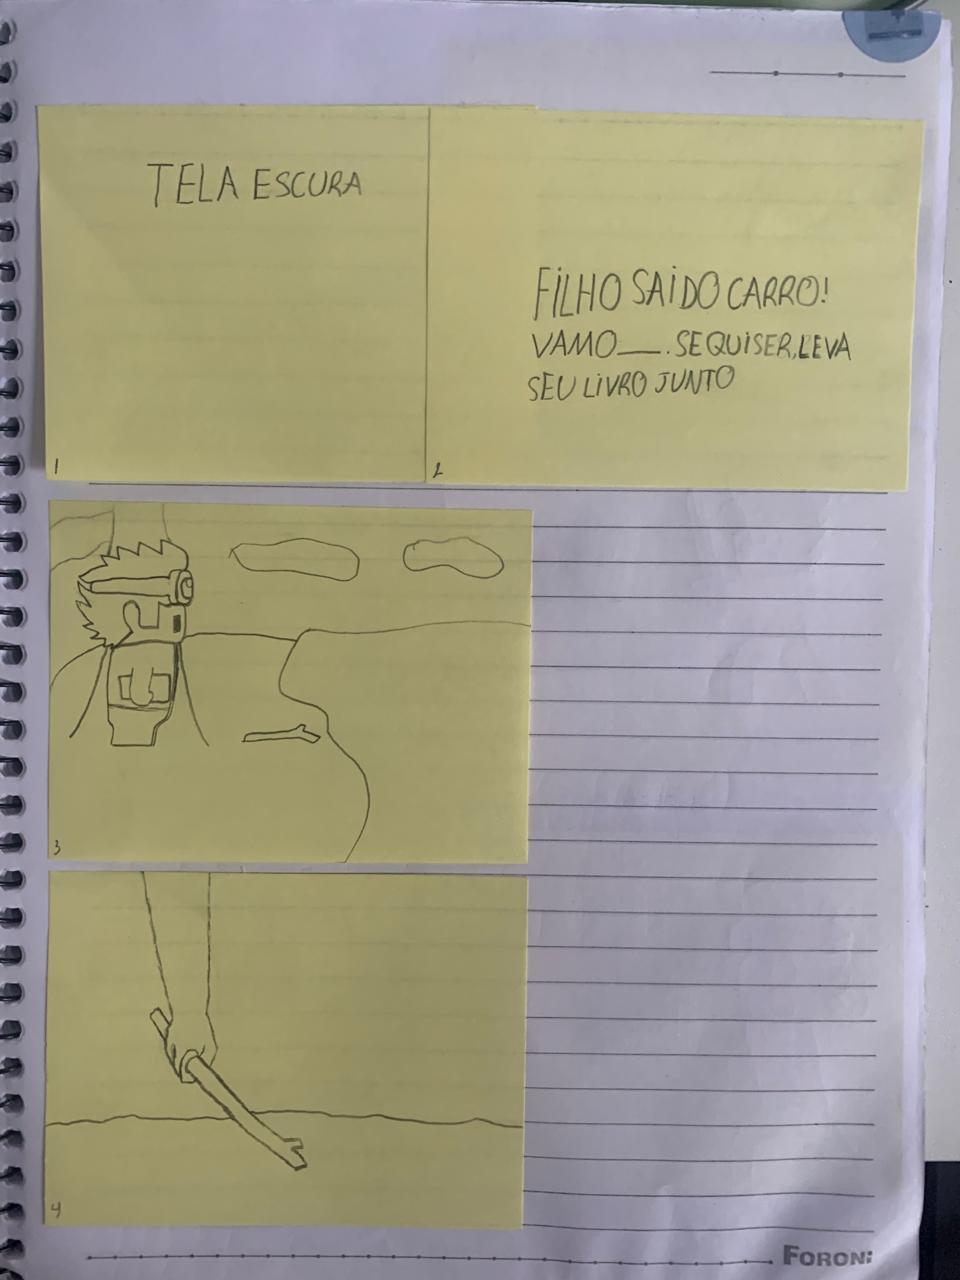 TELA ESCURA
1
FILHO SAI DO CARRO!
VAMO___. SE QUISER, LEVA
SEU LIVRO JUNTO
2
3
4
FORONI